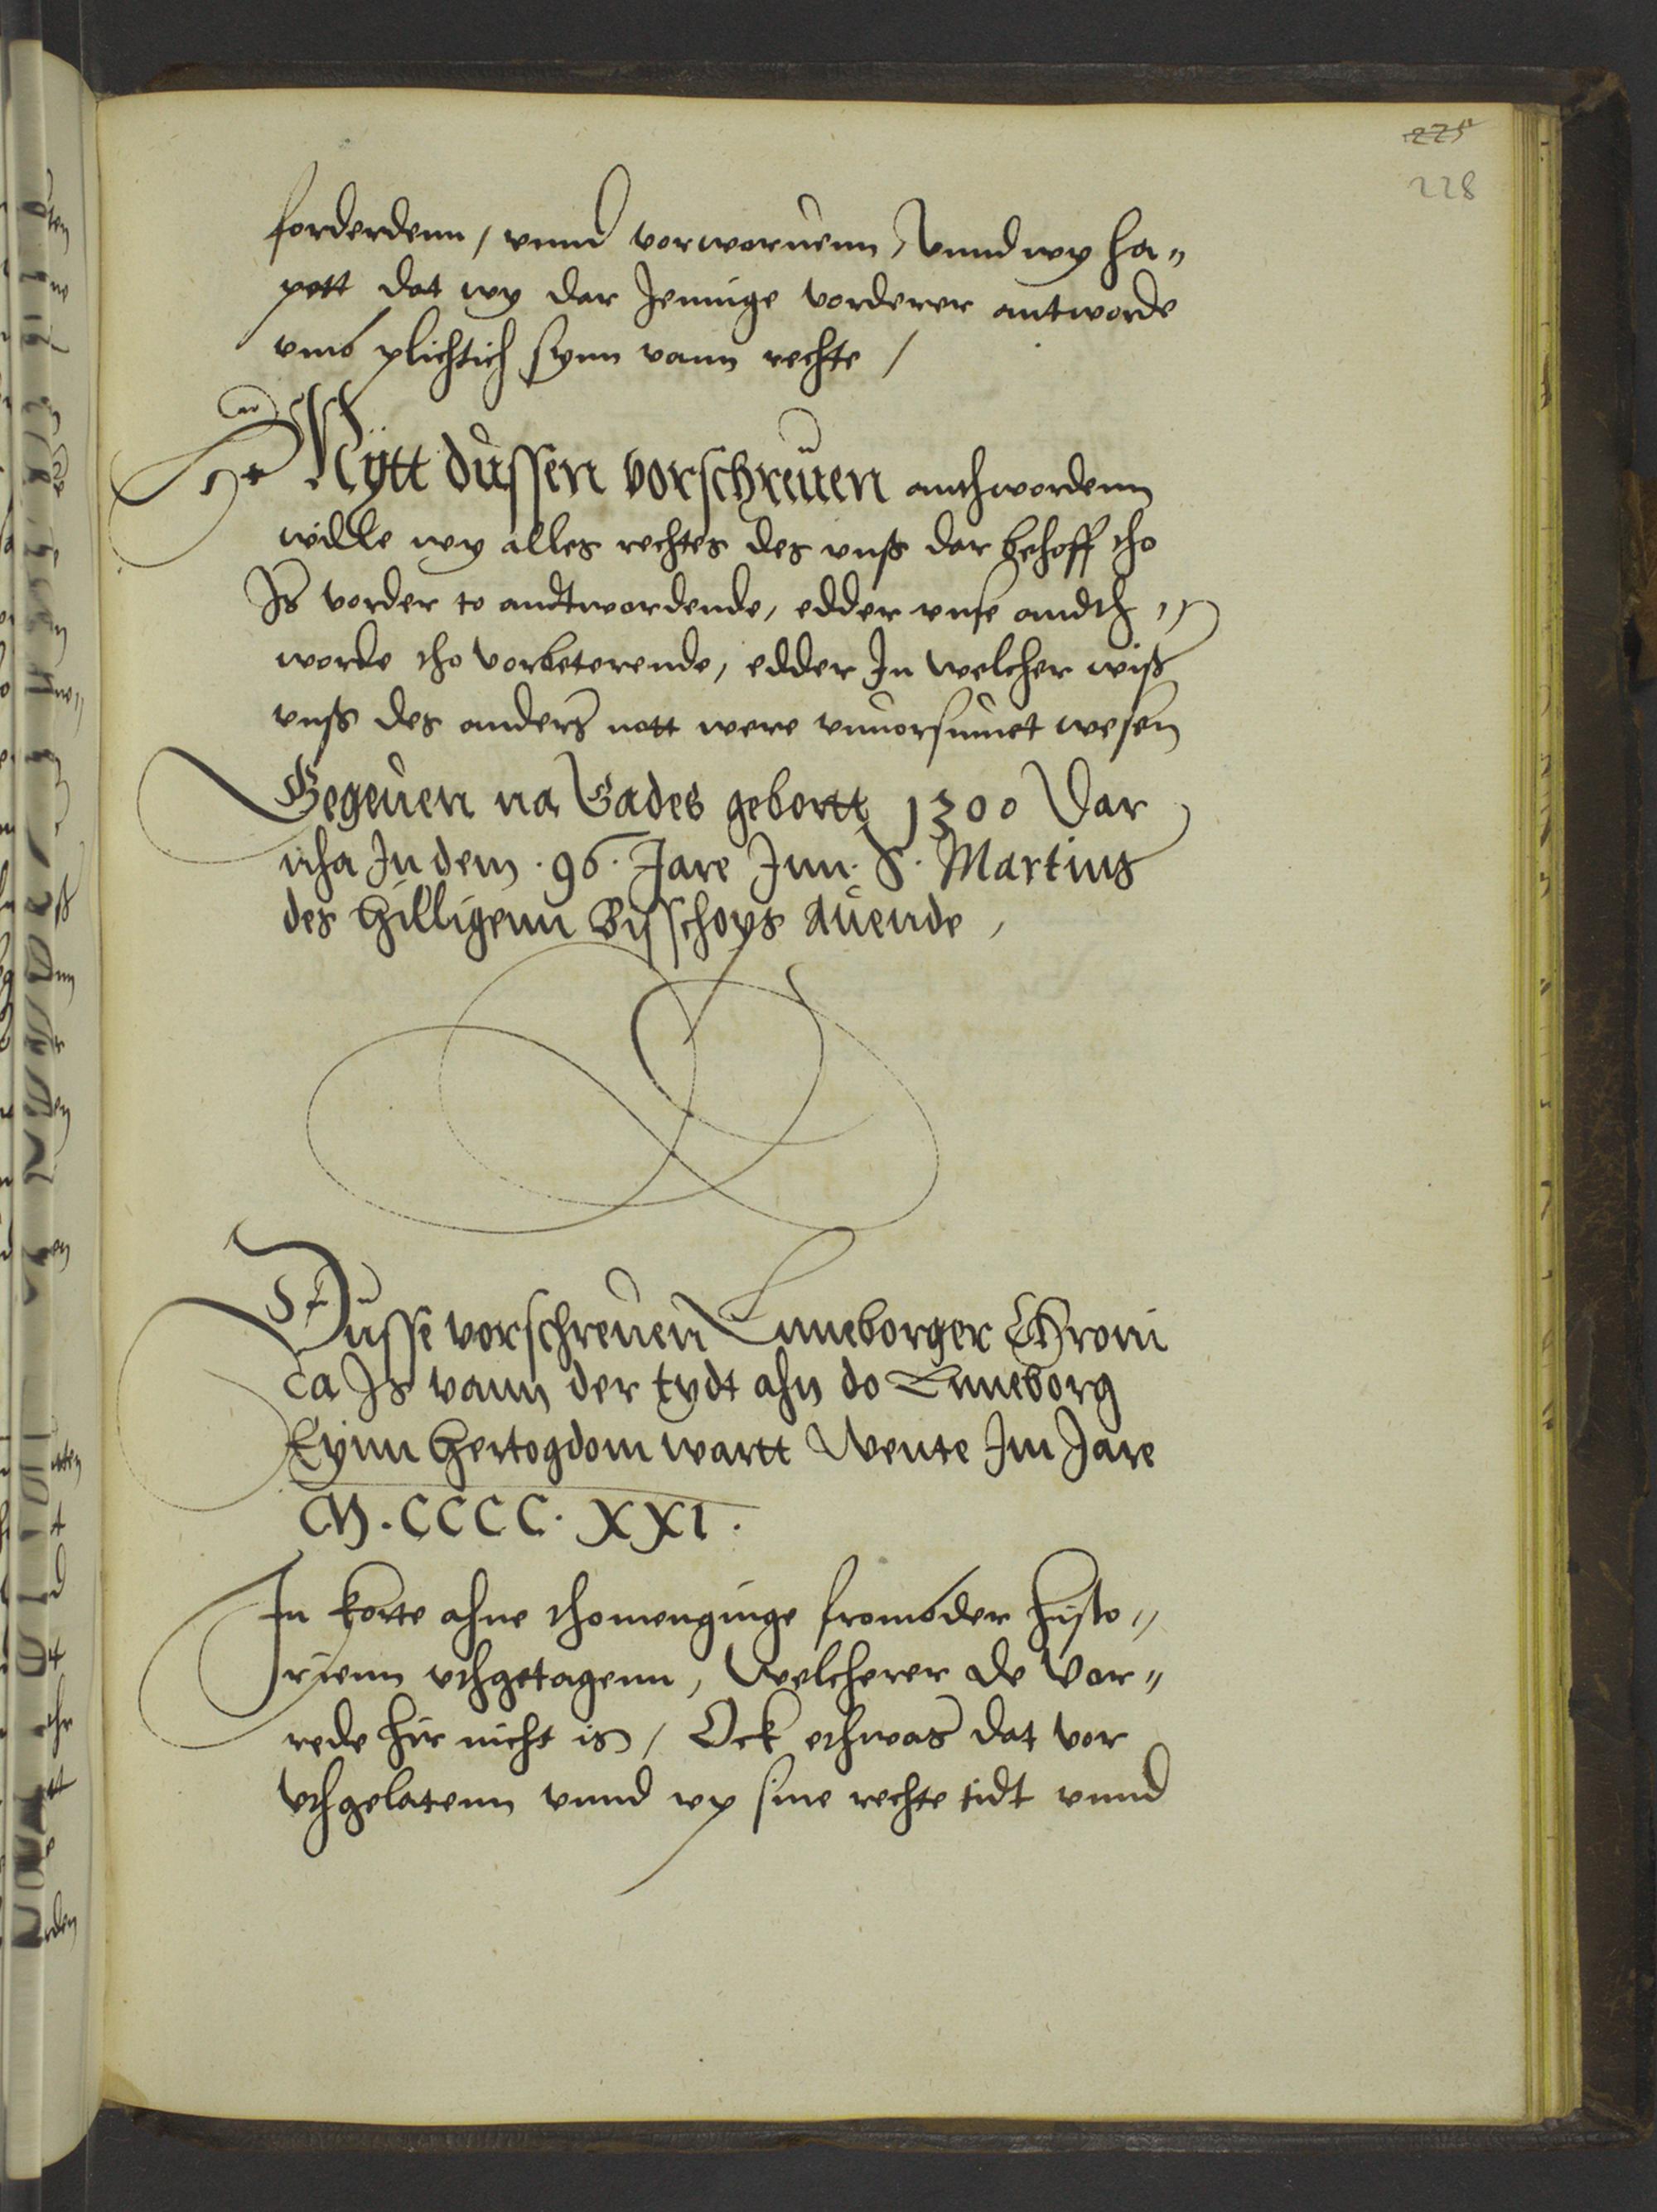 225
228
forderdenn / vnnd vorwaruenn, Vnnd wy ha„
pett dat wy dar Jeninge vorderer antworde
vmb plichtich synn vann rechte /
Mÿtt dussen vorschreuen anthwordenn
wille wy alles rechtes des vnß dar behoff tho
Js vorder to andtwordende, edder vnse andth„
worde tho vorbeterende, edder Jn welcher wiß
vnß des anders nott were vnuorsumet wesen
Gegeuen na Gades gebortt 1300 Dar
nha Jn dem .96. Jare Jnn. S. Martins
des hilligenn Bisschops Auende,
Dusse vorschreuen Luneborger Chroni
ca Js vann der tydt ahn do Luneborg
Eynn Hertogdom wartt Wente Jm Jare
M.CCCC.XXI.
Jn korte ahne thomenginge frombder Histo„
rienn vthgetagenn, Welcherer de Vor„
rede hir nicht is, / Ock ethwas dat vor
Vthgelatenn vnnd vp sine rechte tidt vnnd